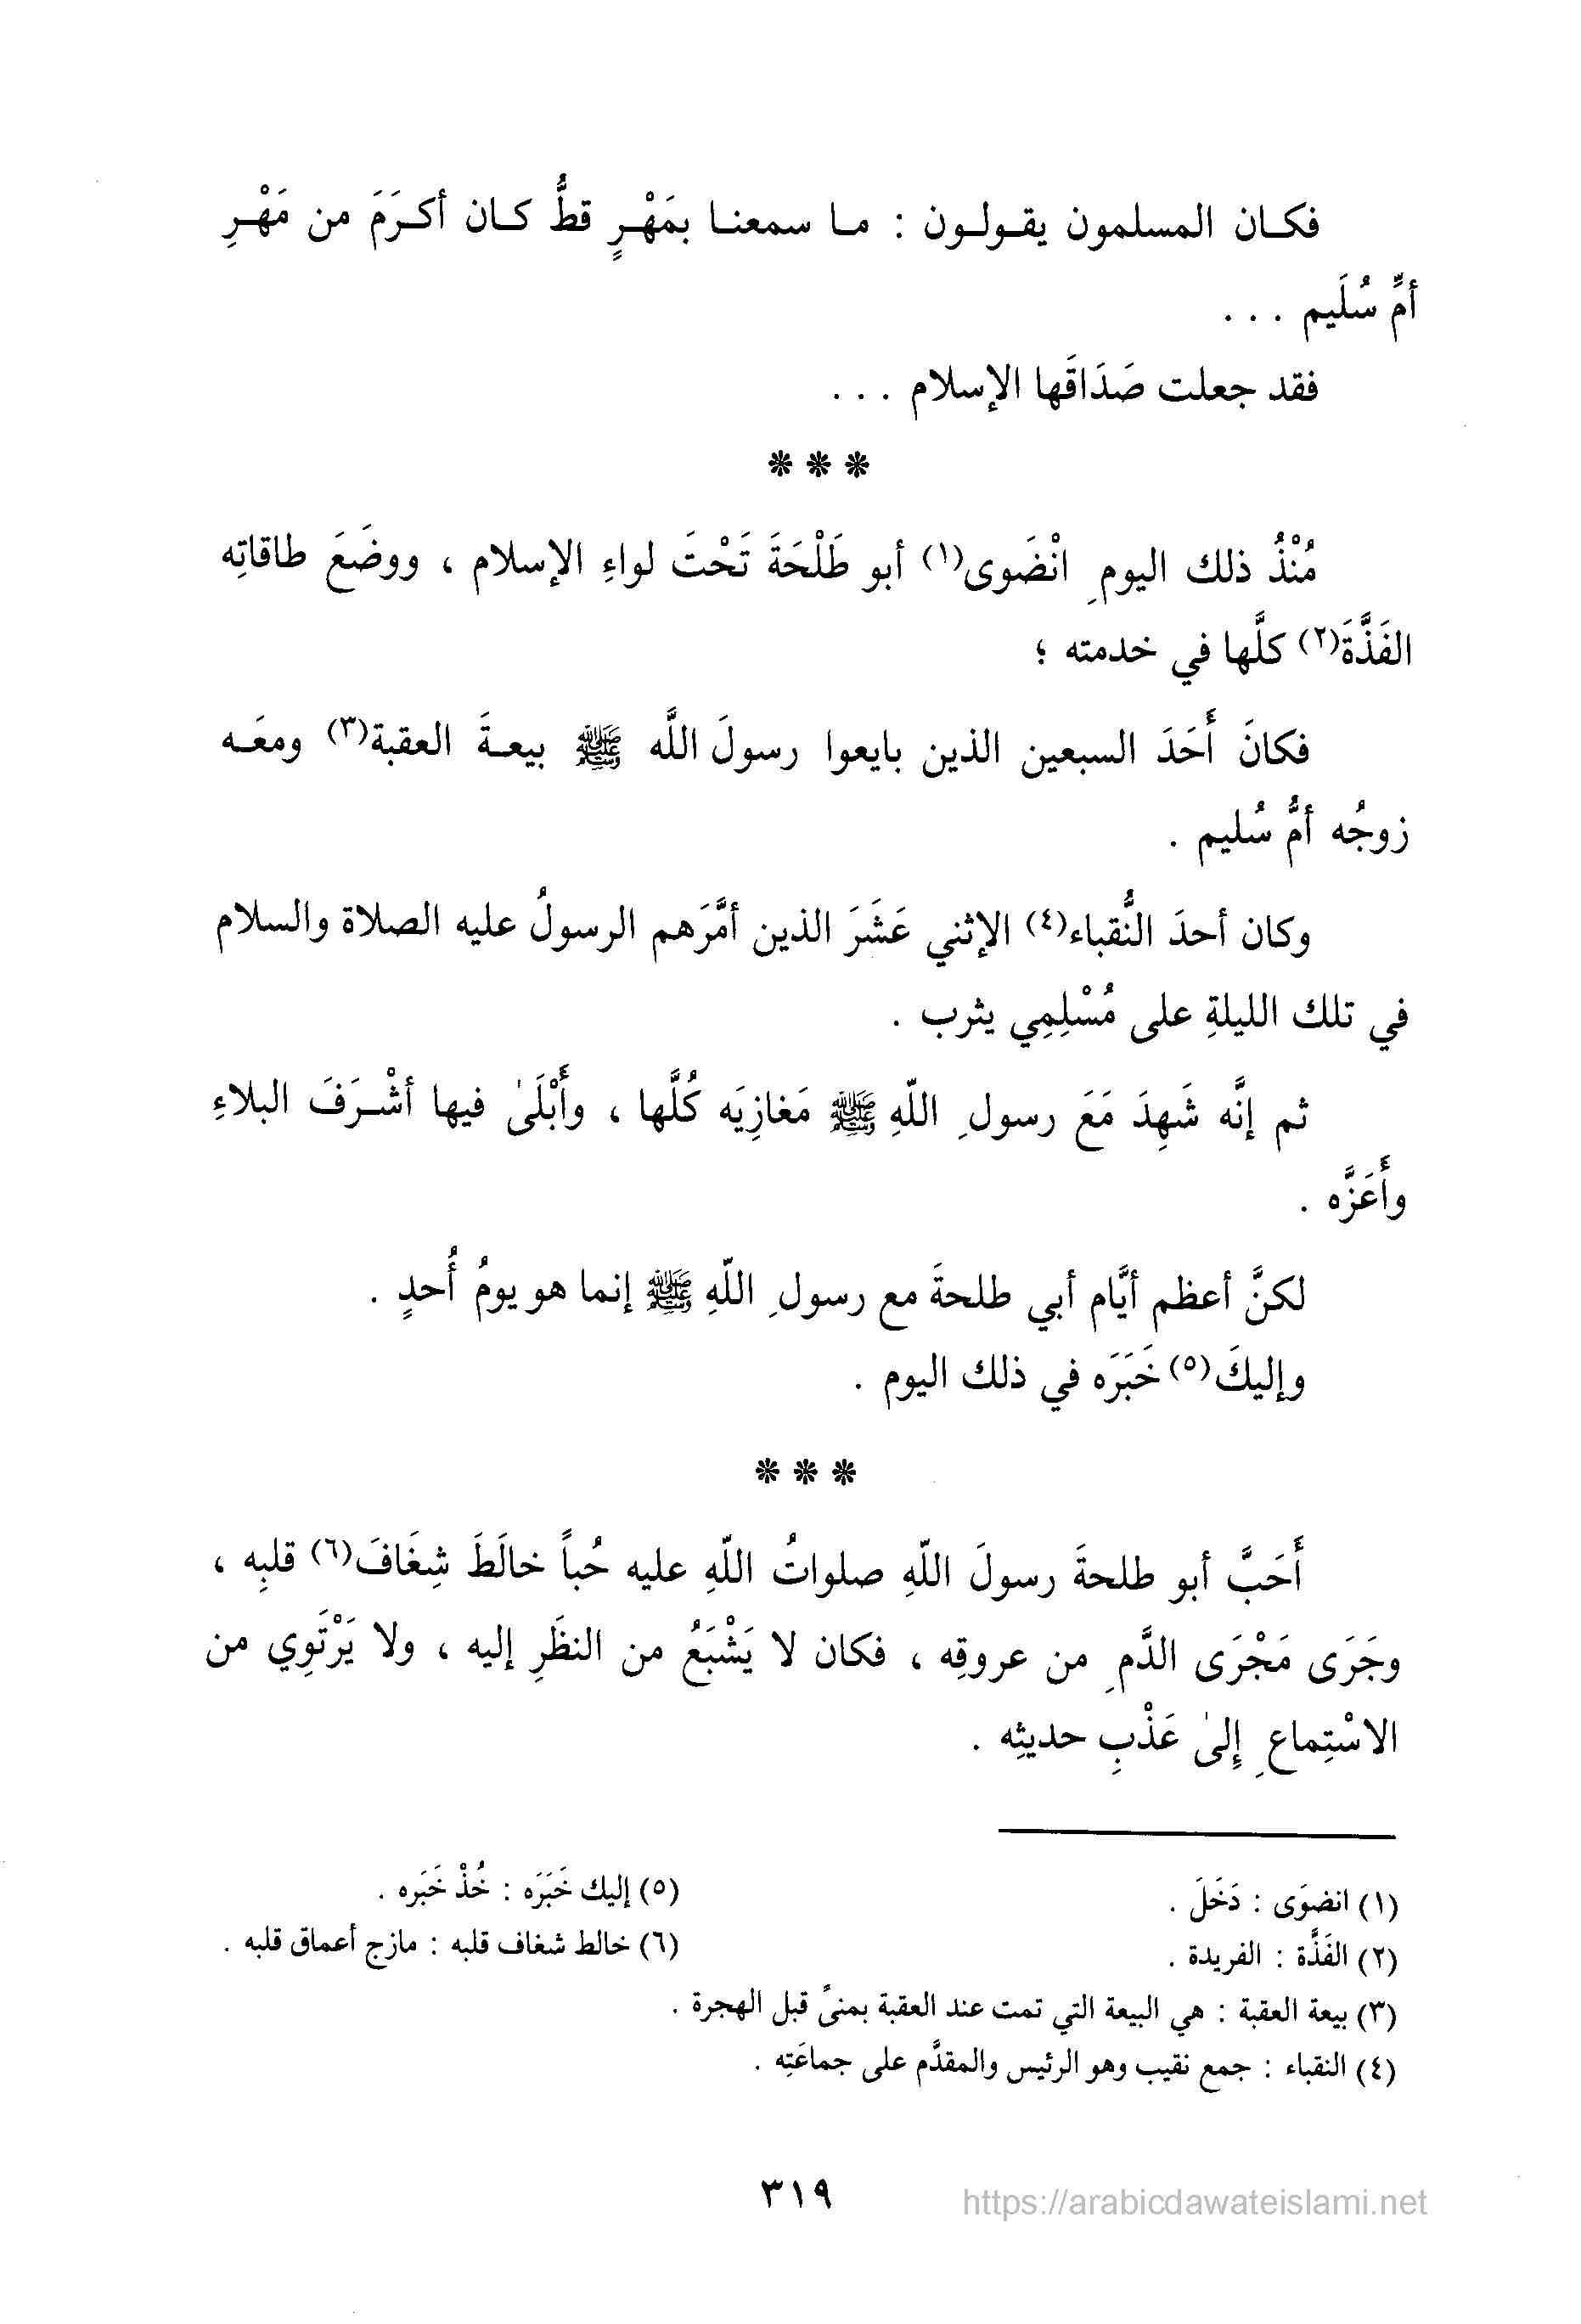 فكـان المسلمون يقـولـون : مـا سمعنـا بمَهْـرٍ قطُّ كـان أكـرَمَ من مَهْـرِ
أمِّ سُلَيم . . .
فقد جعلت صَدَاقَها الإسلام . . .
* * *
مُنْذُ ذلك اليومِ انْضَوى(١) أبو طَلْحَةَ تَحْتَ لواءِ الإسلام ، ووضَعَ طاقاتِه
الفَذَّةَ(٢) كلَّها في خدمته ؛
فكانَ أَحَدَ السبعين الذين بايعوا رسولَ اللَّه ﷺ بيعـةَ العقبة(٣) ومعَـه
زوجُه أمُّ سُليم .
وكان أحدَ النُّقباء(٤) الإثني عَشَرَ الذين أمَّرَهم الرسولُ عليه الصلاة والسلام
في تلك الليلةِ على مُسْلِمِي يثرب .
ثم إنَّه شَهِدَ مَعَ رسولِ اللّهِ ﷺ مَغازِيَه كُلَّها ، وأَبْلَىٰ فيها أشْـرَفَ البلاءِ
وأَعَزَّه .
لكنَّ أعظم أيَّام أبي طلحةَ مع رسولِ اللّهِ ﷺ إنما هو يومُ أُحدٍ .
وإليكَ(٥) خَبَرَه في ذلك اليوم .
* * *
أَحَبَّ أبو طلحةَ رسولَ اللّهِ صلواتُ اللّهِ عليه حُباً خالَطَ شِغَافَ(٦) قلبِه ،
وجَرَى مَجْرَى الدَّمِ من عروقِه ، فكان لا يَشْبَعُ من النظَرِ إليه ، ولا يَرْتَوِي من
الاسْتِماعِ إِلىٰ عَذْبِ حديثِه .
(١) انضوَى : دَخَلَ .
(٢) الفَذَّة : الفريدة .
(٣) بيعة العقبة : هي البيعة التي تمت عند العقبة بمنىً قبل الهجرة .
(٤) النقباء : جمع نقيب وهو الرئيس والمقدَّم على جماعَتِه .
(٥) إليك خَبَرَه : خُذْ خَبَره .
(٦) خالط شغاف قلبه : مازج أعماق قلبه .
٣١٩
https://arabicdawateislami.net